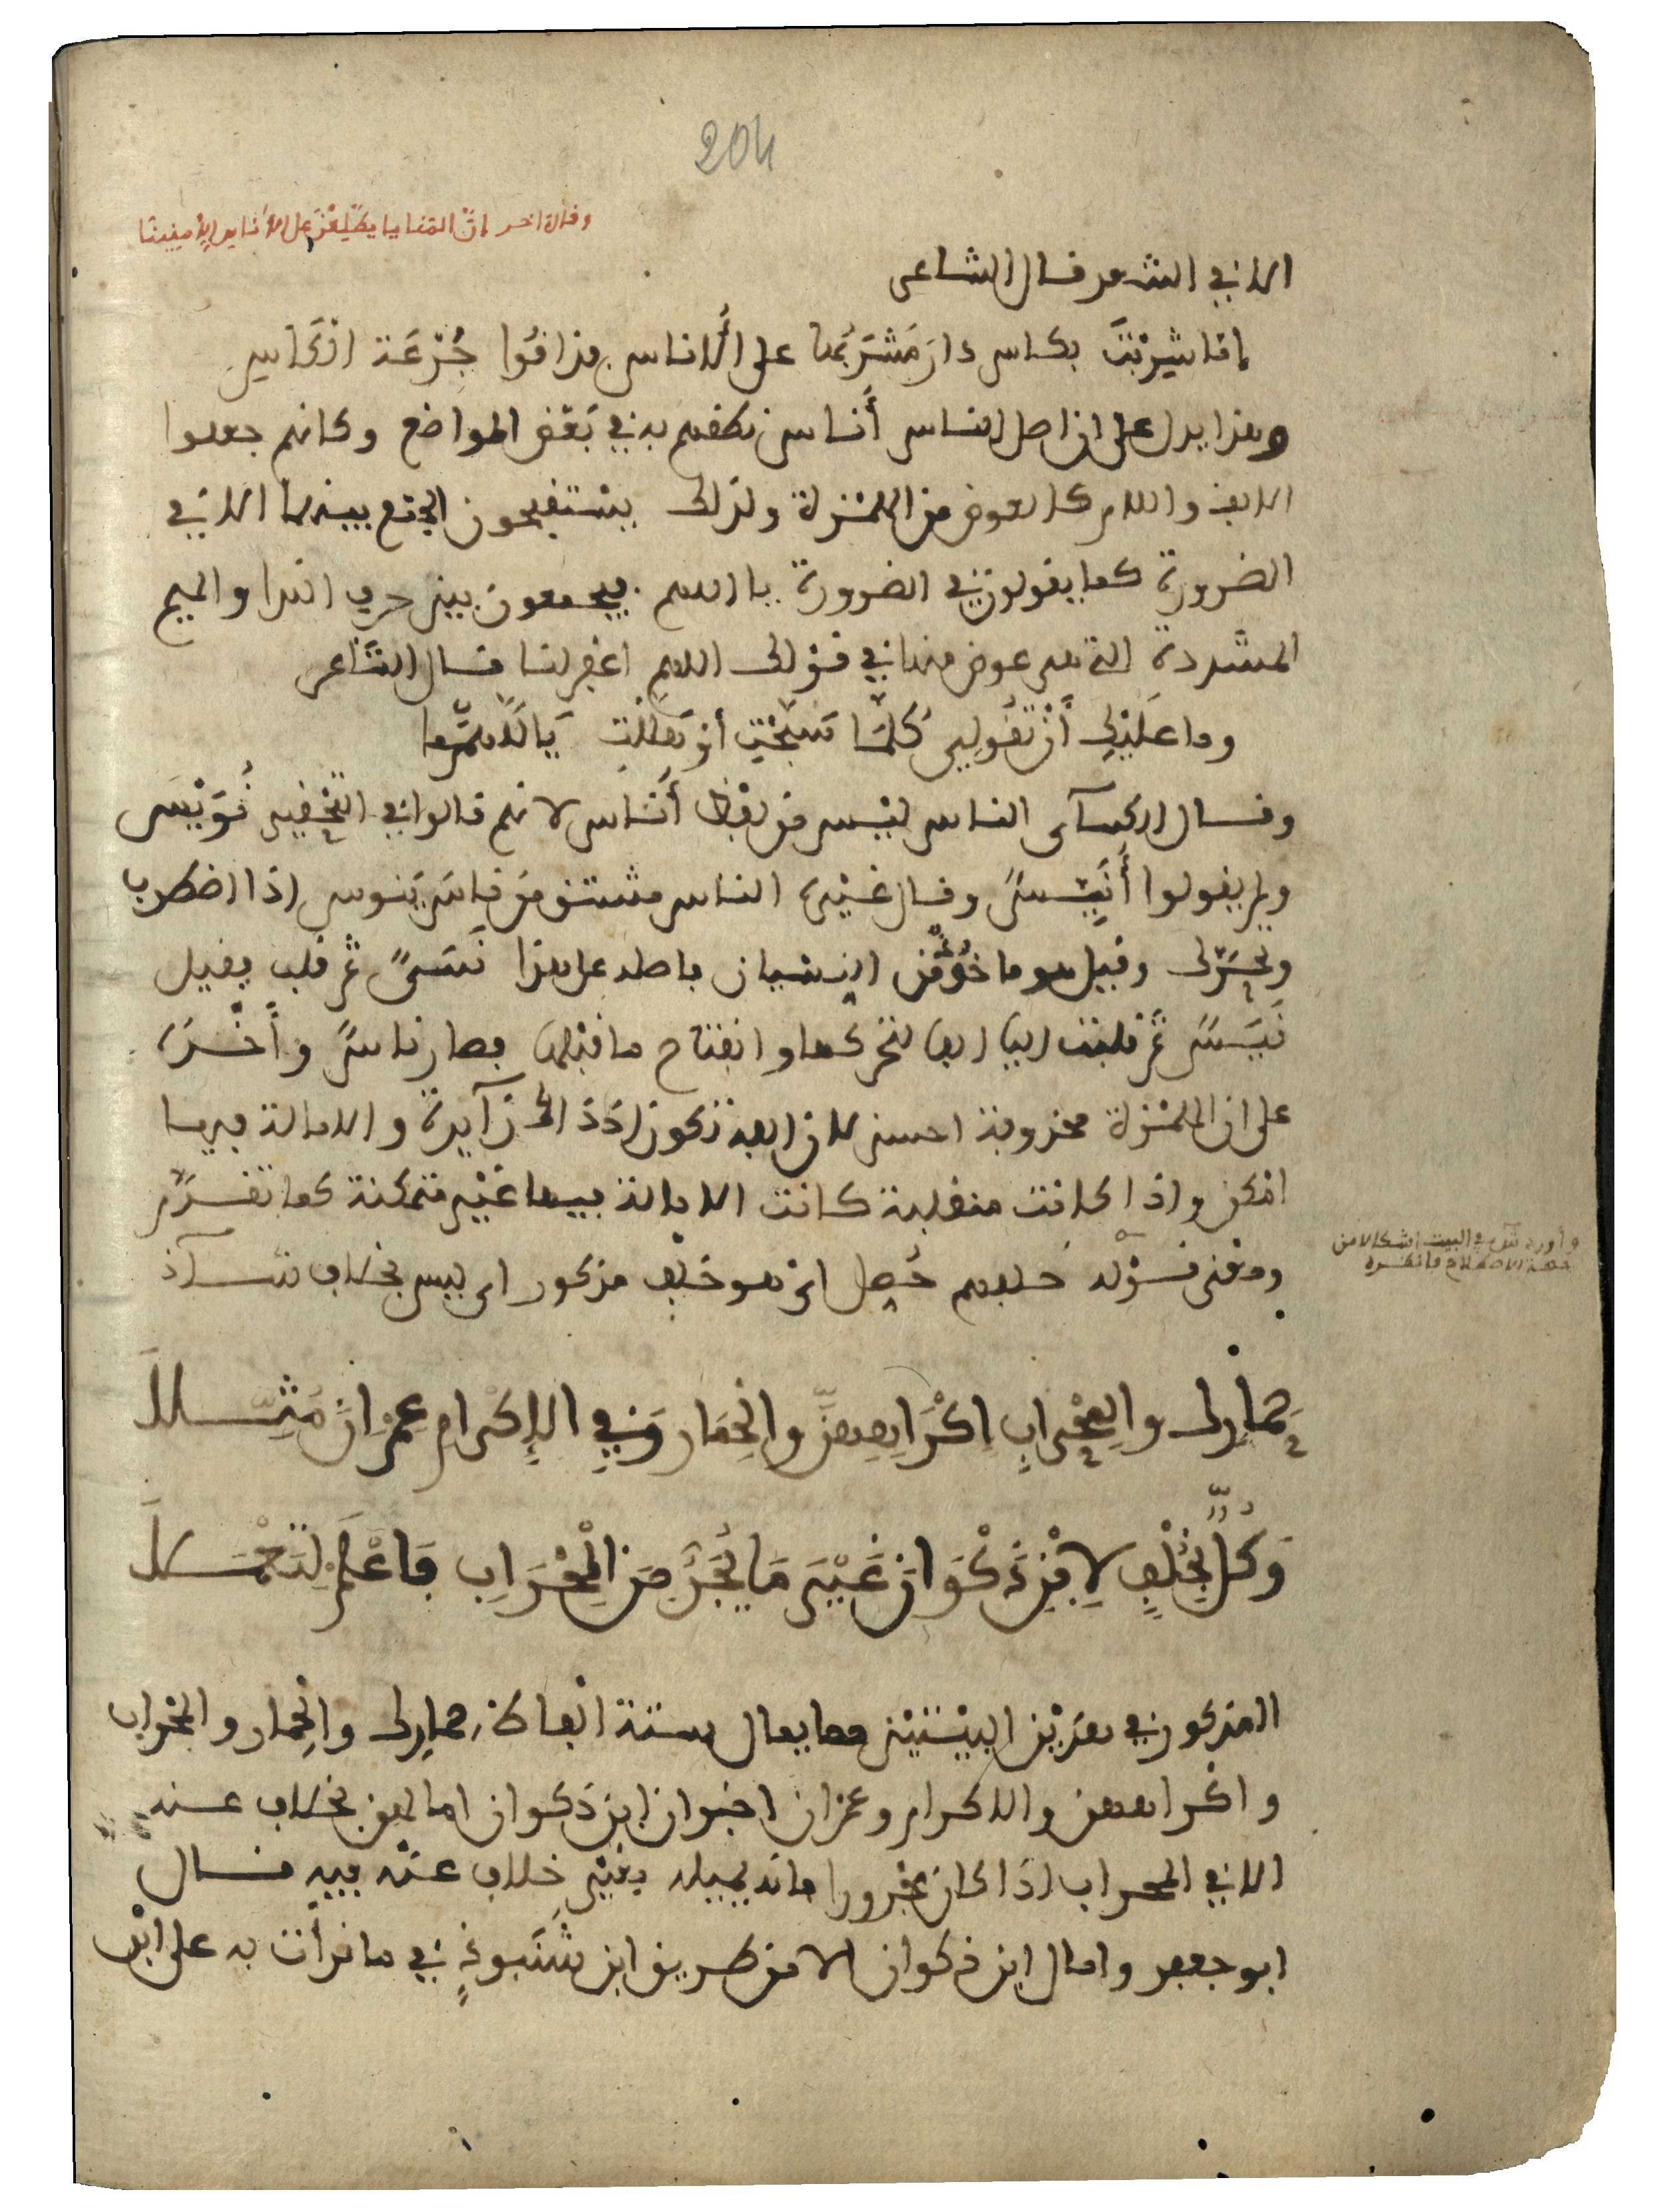 204
وقال اخر إن المنايا يطلعن على الأناس الآمنينا
الا في الشعر قال الشاعر
إنا شربنا بكاس دار مشربها على الأناس فذاقوا جرعة الكاس
وهذا يدل على ان اصل الناس أناس نطقهم به في بعض المواضع وكانهم جعلوا
الالف واللام كالعوض من الهمزة ولذلك يستقبحون الجمع بينهما الا في
الضرورة كما يقولون في الضرورة يا اللهم فيجمعون بين حرف الندا والميم
المشددة التي هي عوض منها في قولك اللهم اغفر لنا قال الشاعر
وما عليك أن تقولي كلما سبحت أو هللت يا اللهم ما
وقال الكسآى الناس ليس من لفظ أناس لانهم قالوا في التحقير نويس
ولم يقولوا أنيس وقال غيره الناس مشتق من ناس ينوس اذا اضطرب
وتحرك وقيل هو ماخوذ من النسيان فاصله على هذا نسي ثم قلب فقيل
نيس ثم قلبت اليا الفا لتحركها وانفتاح ما قبلها فصار ناس وأخذه
على ان الهمزة محذوفة احسن لان الفه تكون اذ ذاك زآيدة والامالة فيها
امكن واذا كانت منقلبة كانت الامالة فيها غير متمكنة كما تقدم
ومعنى قوله خلفهم حصل اي هو خلف مذكور اي ليس بخلاف شآذ
وأورد ش في البيت اشكالا من
جهة الاصطلاح فانظره
حمارك والمحراب إكراههن والحمار وفي الإكرام عمران مثلا
وكل بخلف لابن ذكوان غير ما يجر من المحراب فاعلم لتعملا
المذكور في هذين البيتين مما يمال ستة الفاظ حمارك والحمار والمحراب
واكراههن والاكرام وعمران اخبر ان ابن ذكوان امالهن بخلاف عنه
الا في المحراب اذا كان مجرورا فانه يميله بغير خلاف عنه فيه قال
ابو جعفر وامال ابن ذكوان الا من طريق ابن شنبوذ في ما قرأت به على ابي